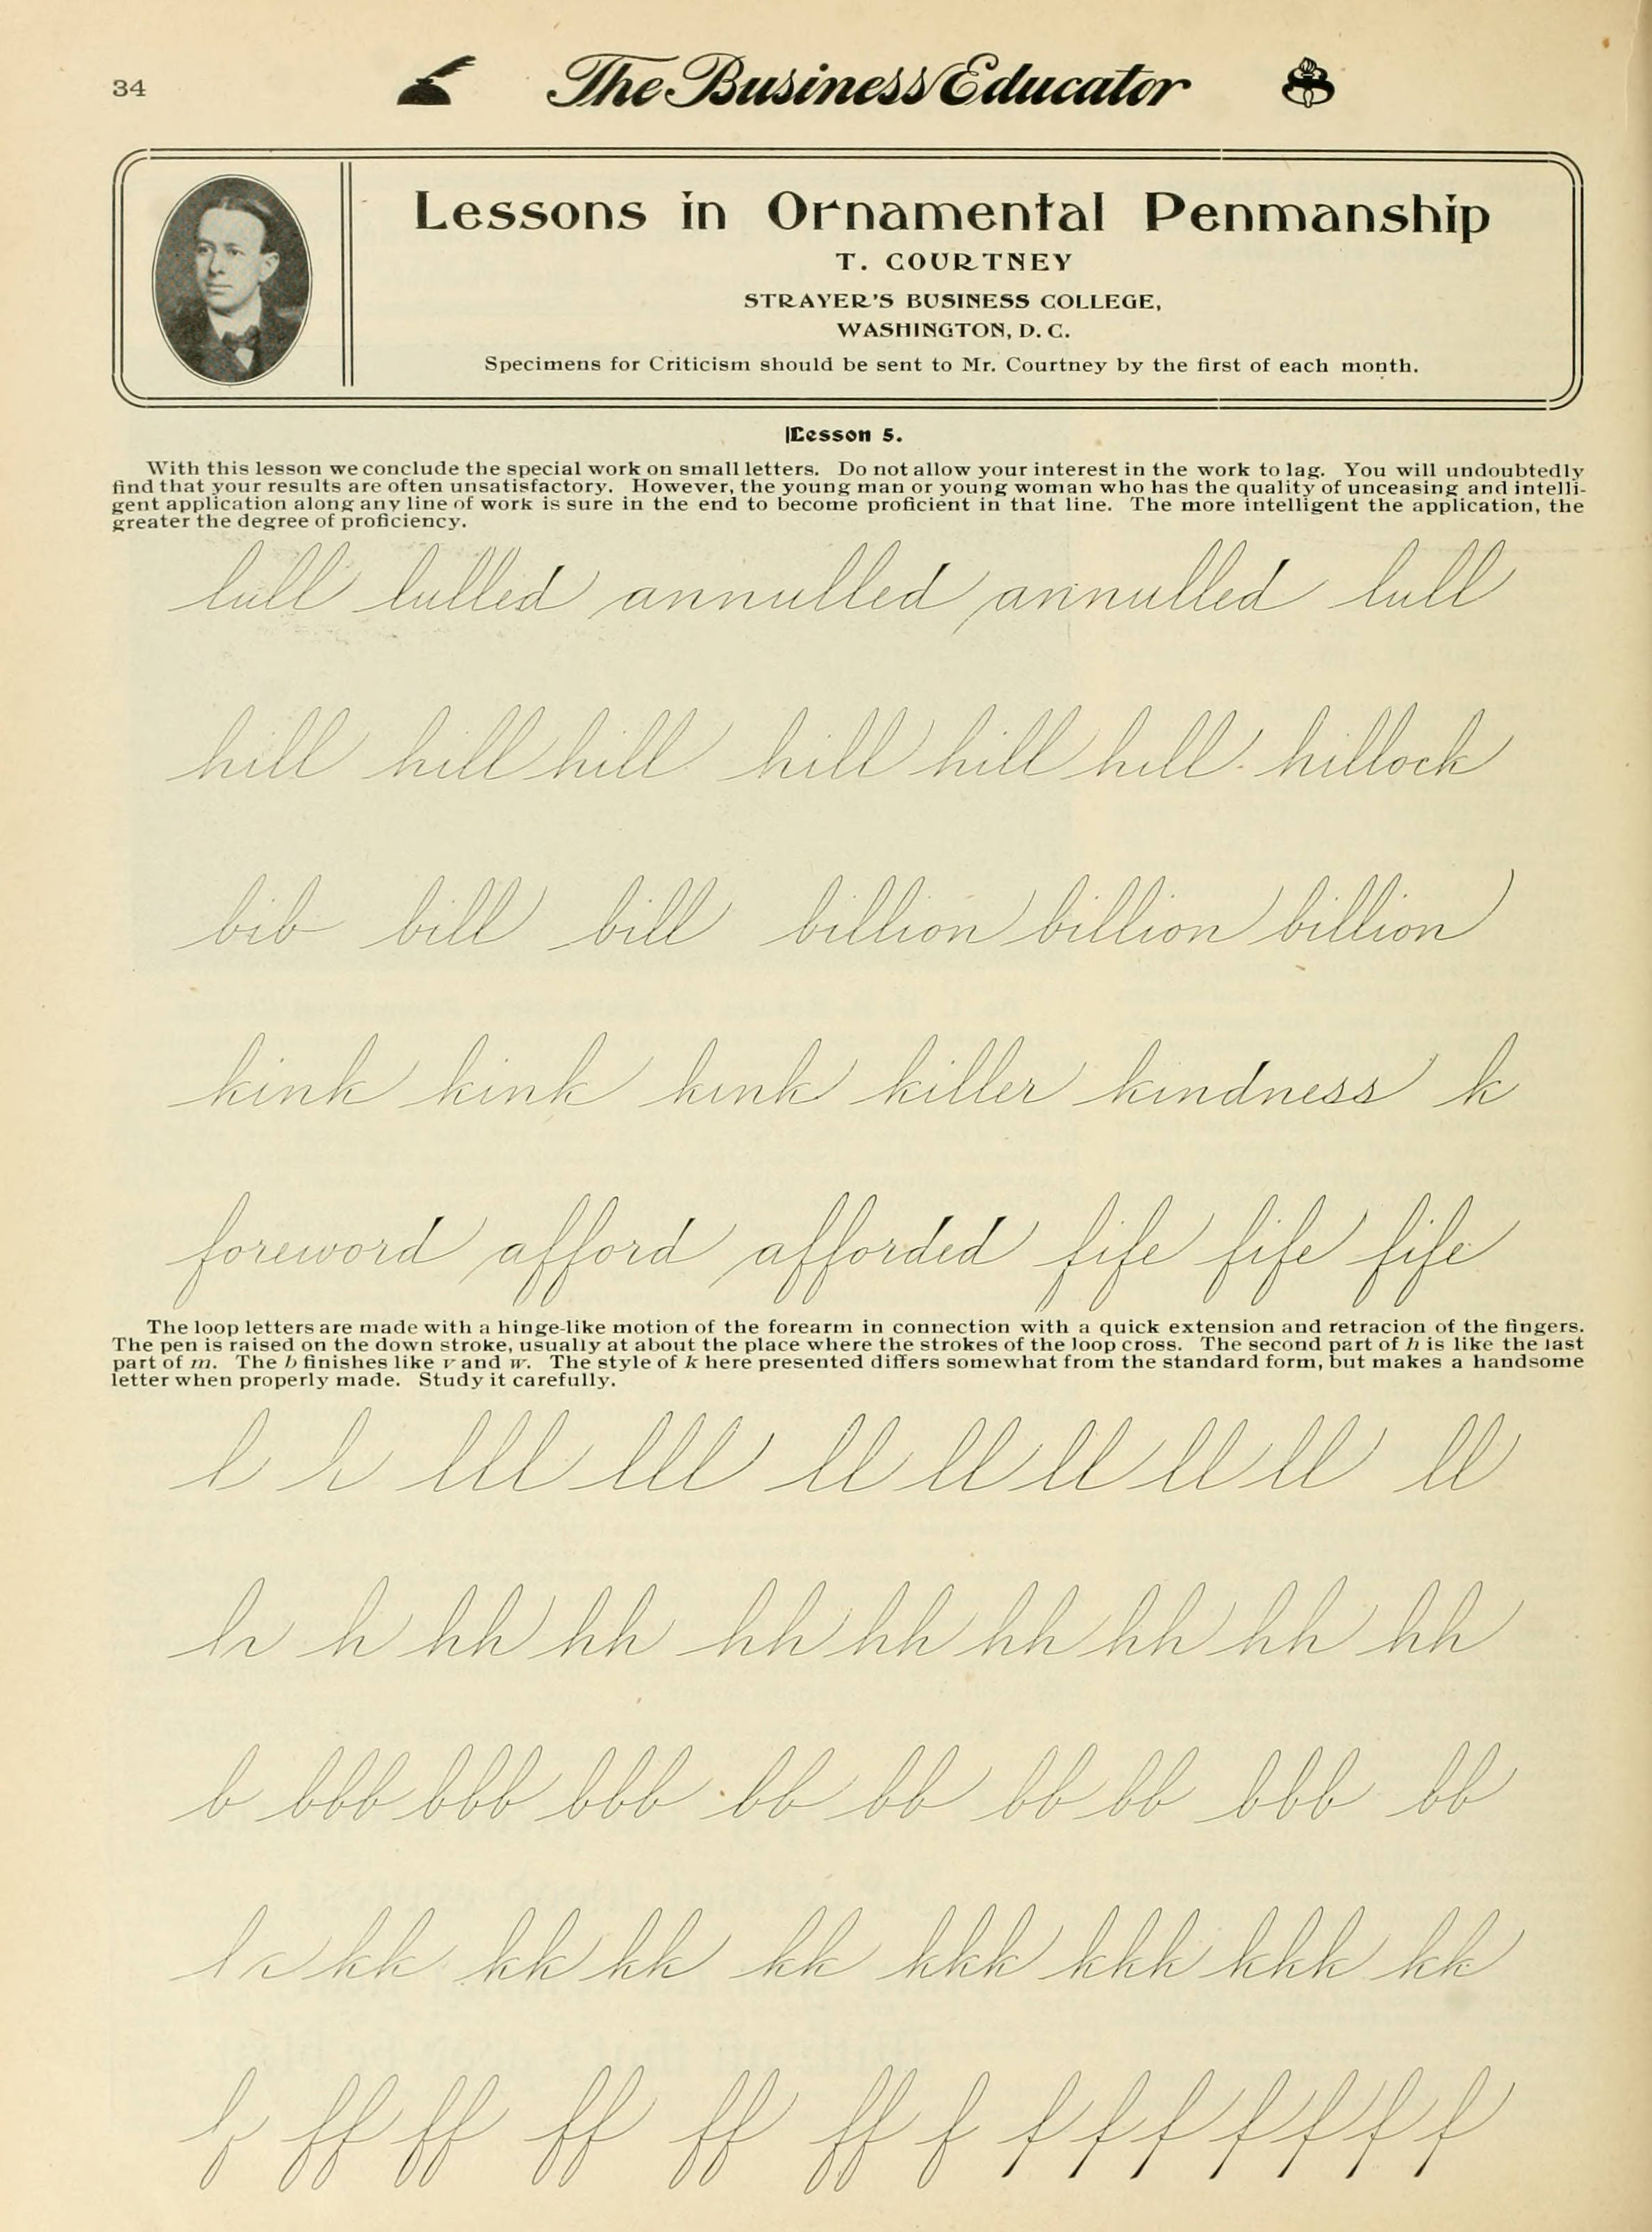 34
The Business Educator
Lessons in Ornamental Penmanship
T. COURTNEY
STRAYER'S BUSINESS COLLEGE,
WASHINGTON, D. C.
Specimens for Criticism should be sent to Mr. Courtney by the first of each month.
Lesson 5.
With this lesson we conclude the special work on small letters. Do not allow your interest in the work to lag. You will undoubtedly
find that your results are often unsatisfactory. However, the young man or young woman who has the quality of unceasing and intelli-
gent application along any line of work is sure in the end to become proficient in that line. The more intelligent the application, the
greater the degree of proficiency.
lull lulled annulled annulled lull
hill hill hill hill hill hill hillock
bib bill bill billion billion billion
kink kink kink killer kindness k
foreword afford afforded fife fife fife
The loop letters are made with a hinge-like motion of the forearm in connection with a quick extension and retracion of the fingers.
The pen is raised on the down stroke, usually at about the place where the strokes of the loop cross. The second part of h is like the last
part of m. The b finishes like v and w. The style of k here presented differs somewhat from the standard form, but makes a handsome
letter when properly made. Study it carefully.
l l lll lll ll ll ll ll ll ll
h h hh hh hh hh hh hh hh hh
b bbb bbb bbb bb bb bb bb bbb bb
kk kk kk kk kkk kkk kkk kk
f ff ff ff ff ff f f f f f f f f